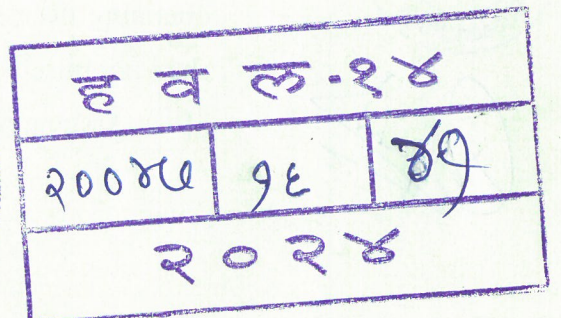 ह व ल-१४
२००४७ १६ ४१
२०२४